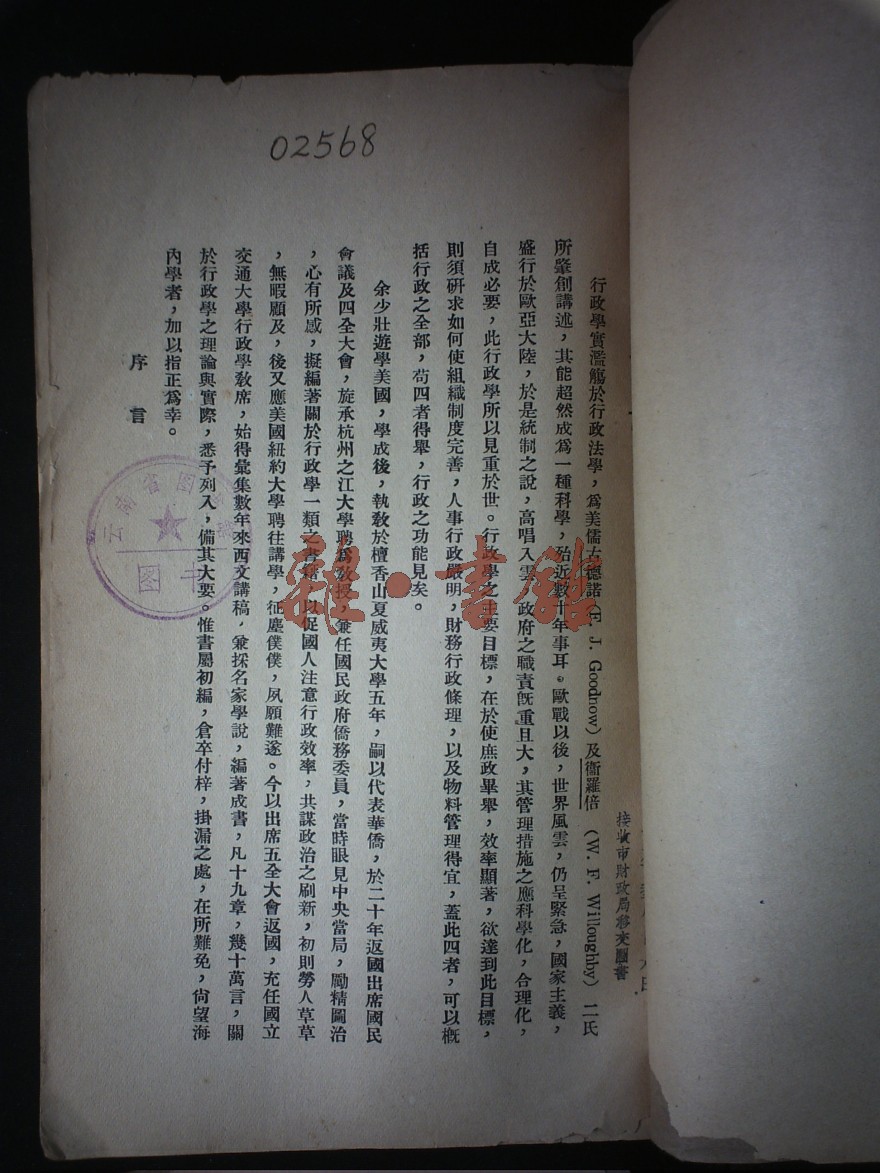 02568
行政學實濫觴於行政法學，為美儒古德諾（F. J. Goodnow）及衞羅倍（W. F. Willoughby）二氏
所肇創講述，其能超然成為一種科學，殆近數十年事耳。歐戰以後，世界風雲，仍呈緊急，國家主義，
盛行於歐亞大陸，於是統制之說，高唱入雲，政府之職責旣重且大，其管理措施之應科學化，合理化，
自成必要，此行政學所以見重於世。行政學之主要目標，在於使庶政畢舉，效率顯著，欲達到此目標，
則須硏求如何使組織制度完善，人事行政嚴明，財務行政條理，以及物料管理得宜，蓋此四者，可以概
括行政之全部，苟四者得舉，行政之功能見矣。
余少壯遊學美國，學成後，執敎於檀香山夏威夷大學五年，嗣以代表華僑，於二十年返國出席國民
會議及四全大會，旋承杭州之江大學聘為敎授，兼任國民政府僑務委員，當時眼見中央當局，勵精圖治
，心有所感，擬編著關於行政學一類之書籍，以促國人注意行政效率，共謀政治之刷新，初則勞人草草
，無暇顧及，後又應美國紐約大學聘往講學，征塵僕僕，夙願難遂。今以出席五全大會返國，充任國立
交通大學行政學敎席，始得彙集數年來西文講稿，兼採名家學說，編著成書，凡十九章，幾十萬言，關
於行政學之理論與實際，悉予列入，備其大要。惟書屬初編，倉卒付梓，掛漏之處，在所難免，尙望海
內學者，加以指正為幸。
序言
接收市財政局移交圖書
云南省图
雜·書館